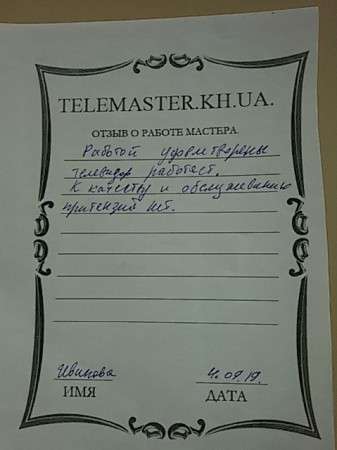 TELEMASTER.KH.UA.
ОТЗЫВ О РАБОТЕ МАСТЕРА
Работой удовлетворены
телевизор работает.
К качеству и обслуживанию
притензий нет.
Иванова 4.09.19.
ИМЯ ДАТА